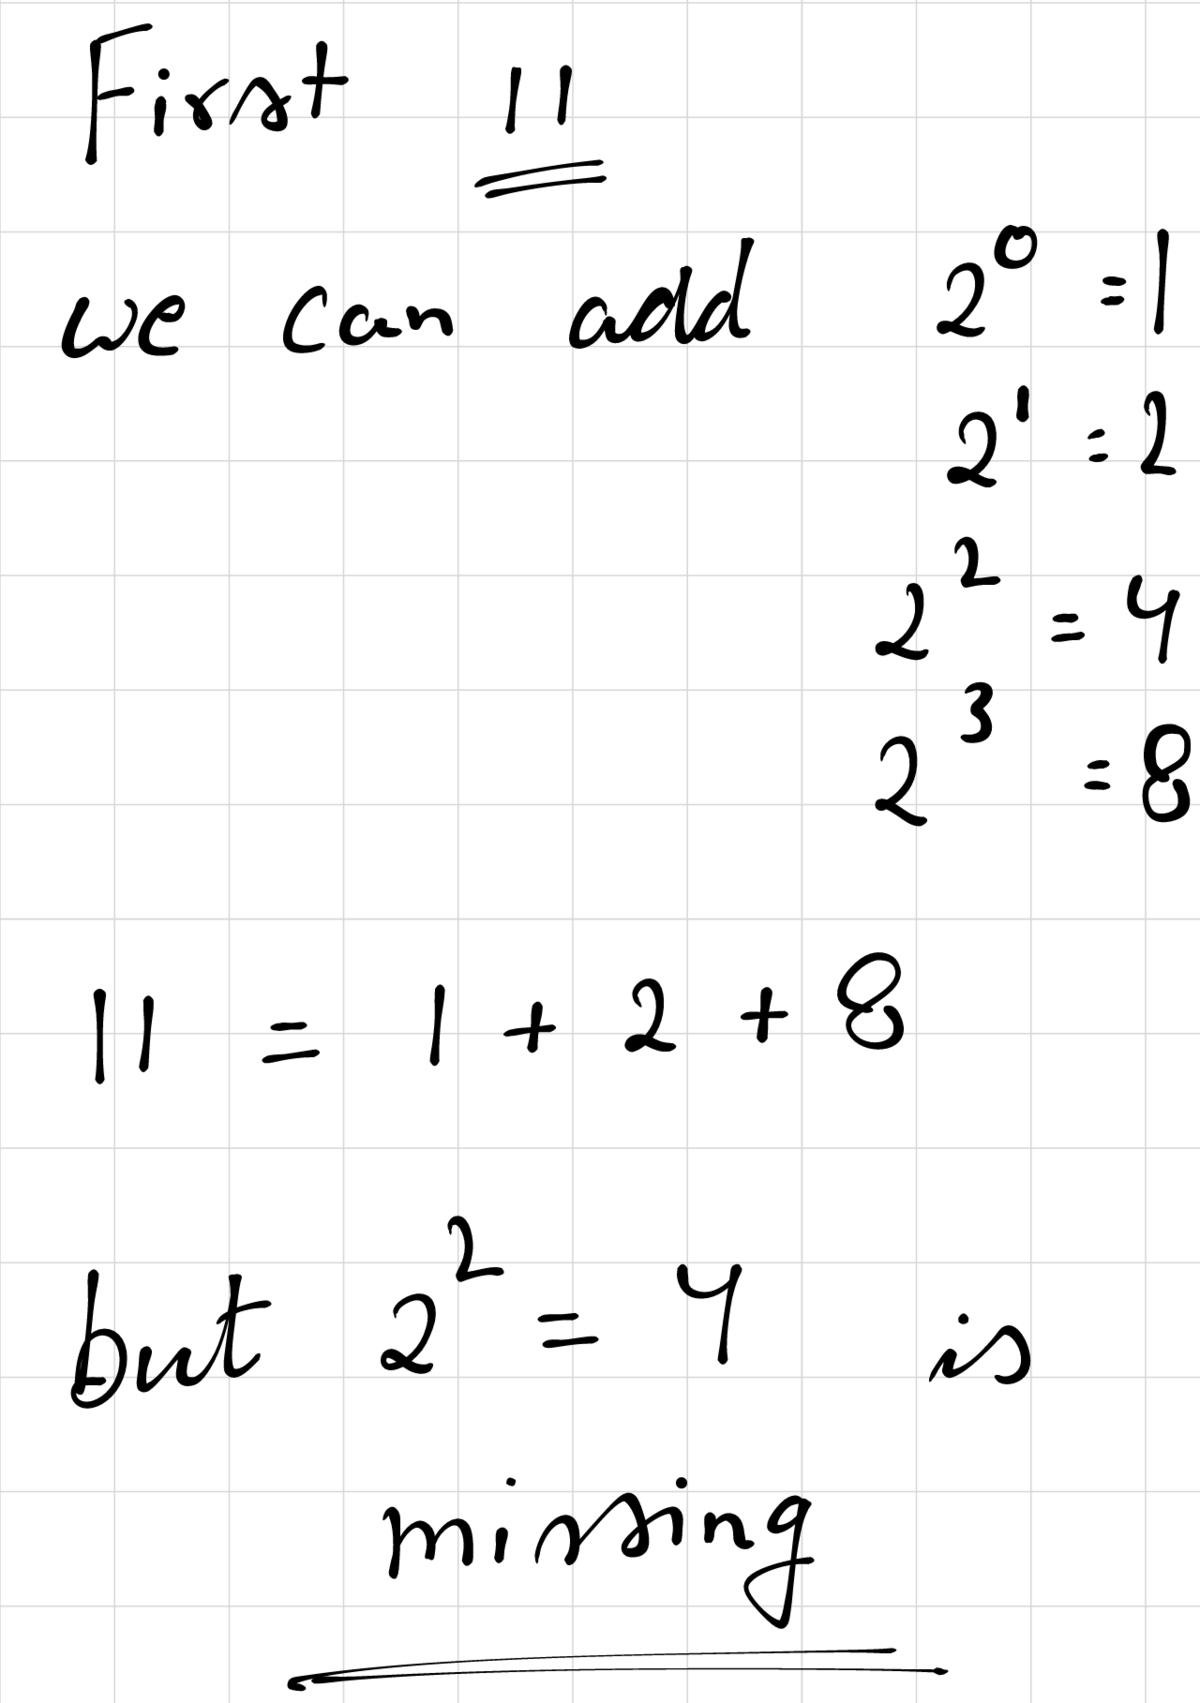 First 11
we can add 2⁰ = 1
2¹ = 2
2² = 4
2³ = 8
11 = 1 + 2 + 8
but 2² = 4 is
missing